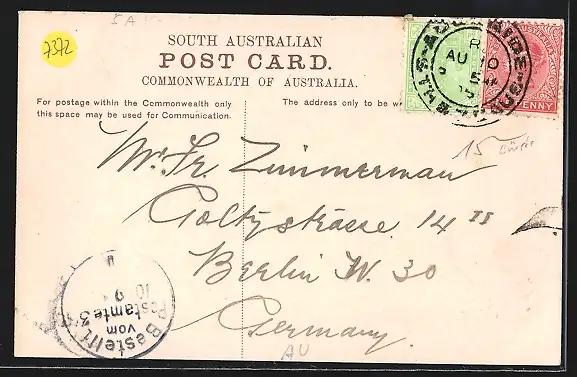 5A
7372
SOUTH AUSTRALIAN
POST CARD.
COMMONWEALTH OF AUSTRALIA.
For postage within the Commonwealth only
this space may be used for Communication.
The address only to be
PENNY
AU 10
15
Mr. Fr. Zimmerman
Goltzstrasse 14 II
Berlin W. 30
Germany.
Bestellt
vom
Postamte 3
10 9
AU